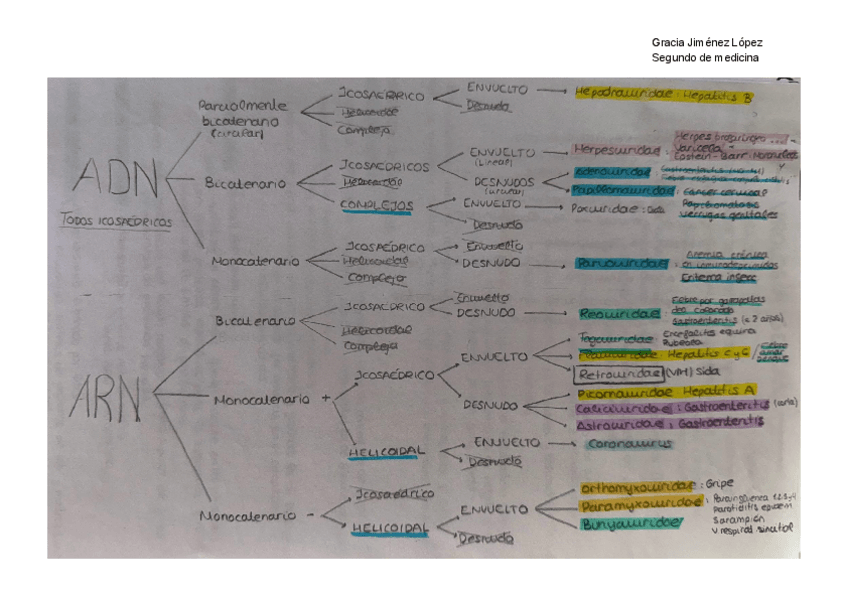 Gracia Jiménez López
Segundo de medicina
ADN
TODOS ICOSAÉDRICOS
Parcialmente
bicatenario
(circular)
ICOSAÉDRICO
Helicoidal
Complejo
ENVUELTO
Desnudo
Hepadnaviridae: Hepatitis B
Bicatenario
ICOSAÉDRICOS
Helicoidal
COMPLEJOS
ENVUELTO
(Lineal)
Herpesviridae:
Varicela
Epstein-Barr
DESNUDOS
(circular)
Adenoviridae:
Papilomaviridae: cáncer cervical
Papilomatosis
Verrugas genitales
ENVUELTO
Poxviridae:
Desnudo
Monocatenario
ICOSAÉDRICO
Helicoidal
Complejo
Envuelto
DESNUDO
Parvoviridae:
Anemia crónica
en inmunodeprimidos
Eritema infecc
ARN
Bicatenario
ICOSAÉDRICO
Helicoidal
Complejo
Envuelto
DESNUDO
Reoviridae:
Fiebre por garrapatas
del colorado
Gastroenteritis (< 2 años)
Monocatenario +
ICOSAÉDRICO
ENVUELTO
Togaviridae:
Encefalitis equina
Rubeola
Flaviviridae: Hepatitis C y G / Fiebre
amar
dengue
Retroviridae (VIH) Sida
DESNUDO
Picornaviridae Hepatitis A
Caliciviridae: Gastroenteritis
Astroviridae: Gastroenteritis
HELICOIDAL
ENVUELTO
Desnudo
Coronavirus
Monocatenario -
Icosaédrico
HELICOIDAL
ENVUELTO
Desnudo
Orthomyxoviridae: Gripe
Paramyxoviridae:
Parainfluenza 1,2,3,4
Parotiditis epidem
Sarampión
V. respiral sincitial
Bunyaviridae